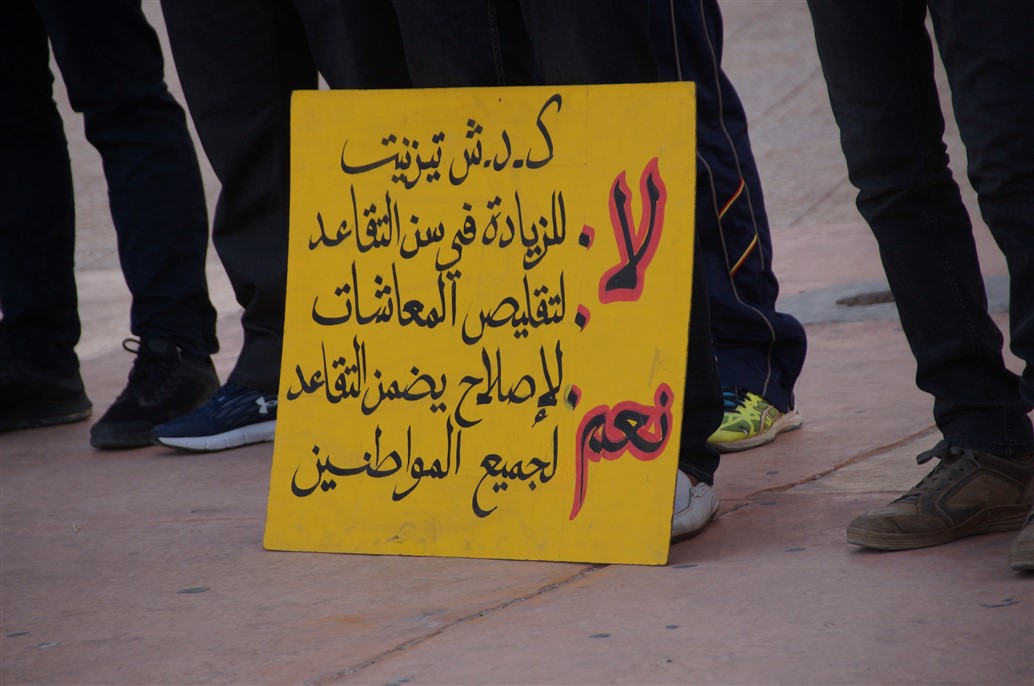 ك.د.ش تيزنيت
لا
للزيادة في سن التقاعد
لتقليص المعاشات
نعم
لإصلاح يضمن التقاعد
لجميع المواطنين